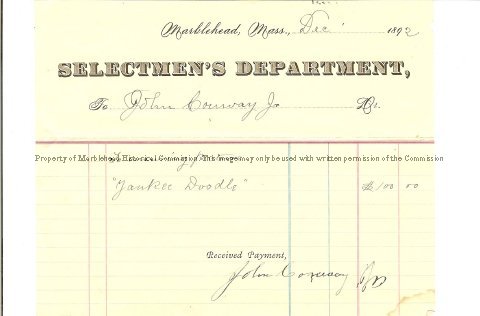 Marblehead, Mass., Dec 1892
SELECTMEN'S DEPARTMENT,
To John Conway Jr Dr.
Property of Marblehead Historical Commission. This image may only be used with written permission of the Commission
"Yankee Doodle" $100 00
Received Payment,
John Conway Jr